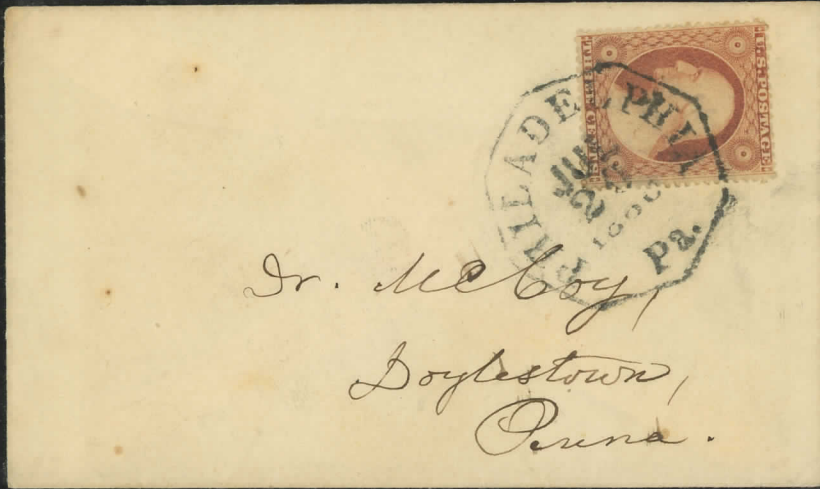 U.S. POSTAGE.
THREE CENTS.
PHILADELPHIA
Pa.
Dr. McCoy,
Doylestown,
Penna.